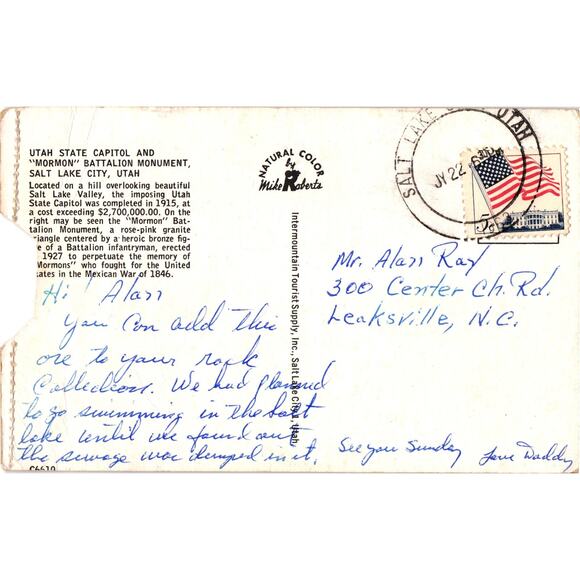 UTAH STATE CAPITOL AND
"MORMON" BATTALION MONUMENT,
SALT LAKE CITY, UTAH
Located on a hill overlooking beautiful
Salt Lake Valley, the imposing Utah
State Capitol was completed in 1915, at
a cost exceeding $2,700,000.00. On the
right may be seen the "Mormon" Bat-
talion Monument, a rose-pink granite
riangle centered by a heroic bronze fig-
e of a Battalion infantryman, erected
1927 to perpetuate the memory of
Mormons" who fought for the United
tates in the Mexican War of 1846.
Hi! Alan
You can add this
one to your rock
Collection. We had planned
to go swimming in the salt
lake until we found out
the sewage was dumped in it.
C6610
NATURAL COLOR
by
Mike Roberts
Intermountain Tourist Supply, Inc., Salt Lake City, Utah
SALT LAKE UTAH
JY 22
5c
Mr. Alan Ray
300 Center Ch. Rd.
Leaksville, N.C.
See you Sunday
Love Daddy